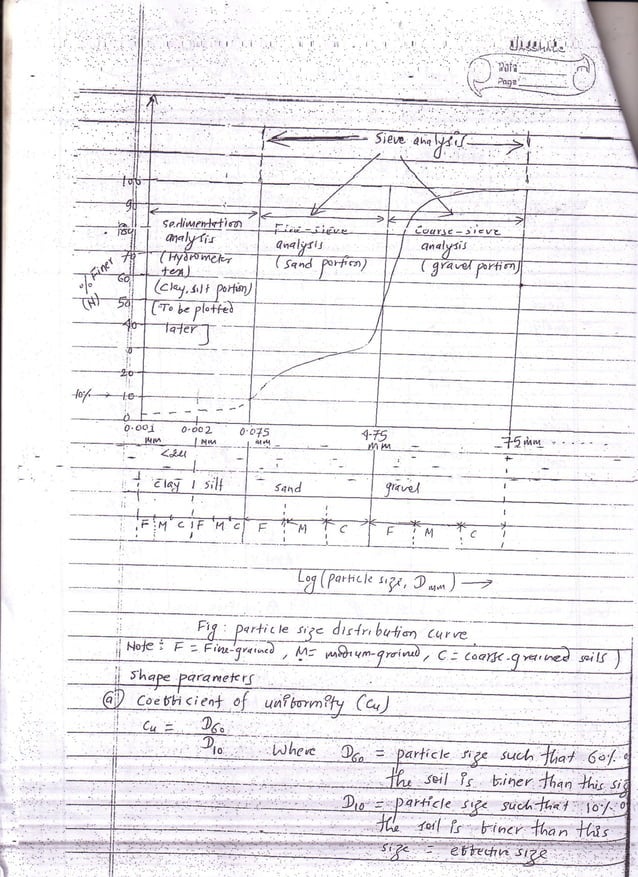 Date:
Page:
Sieve analysis
100
90
80
70
60
50
40
30
20
10
0
10%
% Finer
(N)
sedimentation
analysis
(Hydrometer
test)
(Clay, silt portion)
[To be plotted
later]
Fine-sieve
analysis
(sand portion)
Coarse-sieve
analysis
(gravel portion)
0.001 0.002 0.075 4.75 75 mm
mm mm mm mm
<2μ
clay silt sand gravel
F M C F M C F M C F M C
Log (particle size, D mm) →
Fig: particle size distribution curve
Note: F = Fine-grained, M = medium-grained, C = coarse-grained soils)
shape parameters
(a) Coefficient of uniformity (Cu)
Cu = D60
D10 Where D60 = particle size such that 60%
the soil is finer than this
D10 = particle size such that 10%
the soil is finer than this
size = effective size